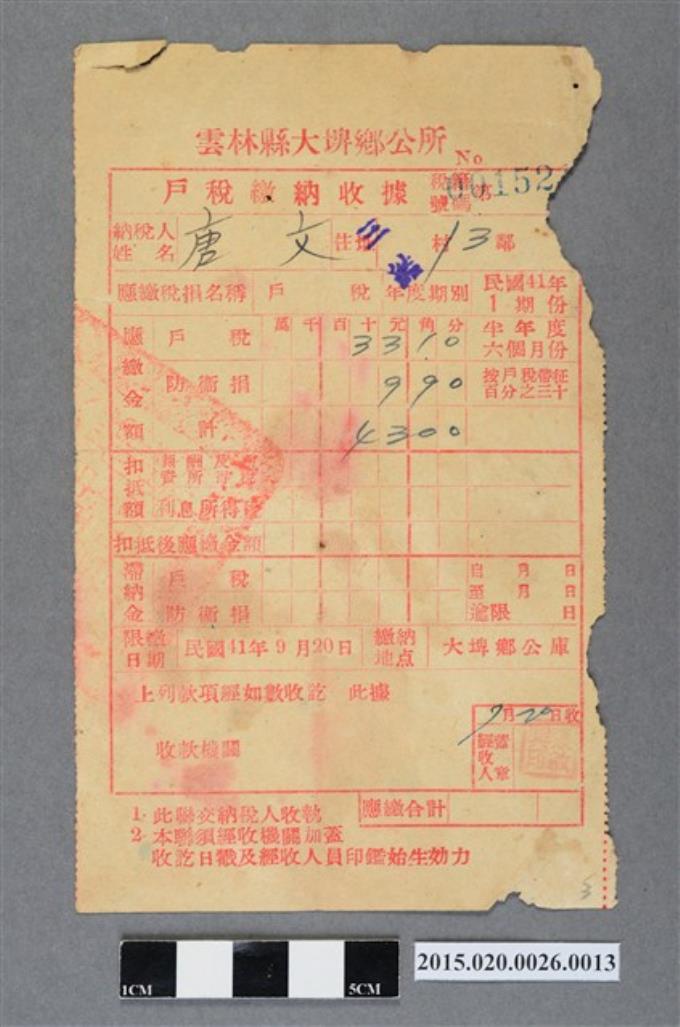 雲林縣大埤鄉公所
No
戶稅繳納收據 號碼 第 00152
納稅人姓名 唐文 住址 三 村 13 鄰
應繳稅捐名稱 戶 稅 年度期別 民國41年 1期份
萬千百十元角分 半年度
應繳金額 戶稅 3310 六個月份
防衛捐 990 按戶稅帶征百分之三十
計 4300
扣抵額
利息所得稅
扣抵後應繳金額
滯納金 戶稅 自 月 日
至 月 日
防衛捐 逾限 日
限繳日期 民國41年9月20日 繳納地点 大埤鄉公庫
上列款項經如數收訖 此據
9月20日收
收款機關 經收人 蓋章
應繳合計
1. 此聯交納稅人收執
2. 本聯須經收機關加蓋
收訖日戳及經收人員印鑑始生効力
3
1CM 5CM
2015.020.0026.0013